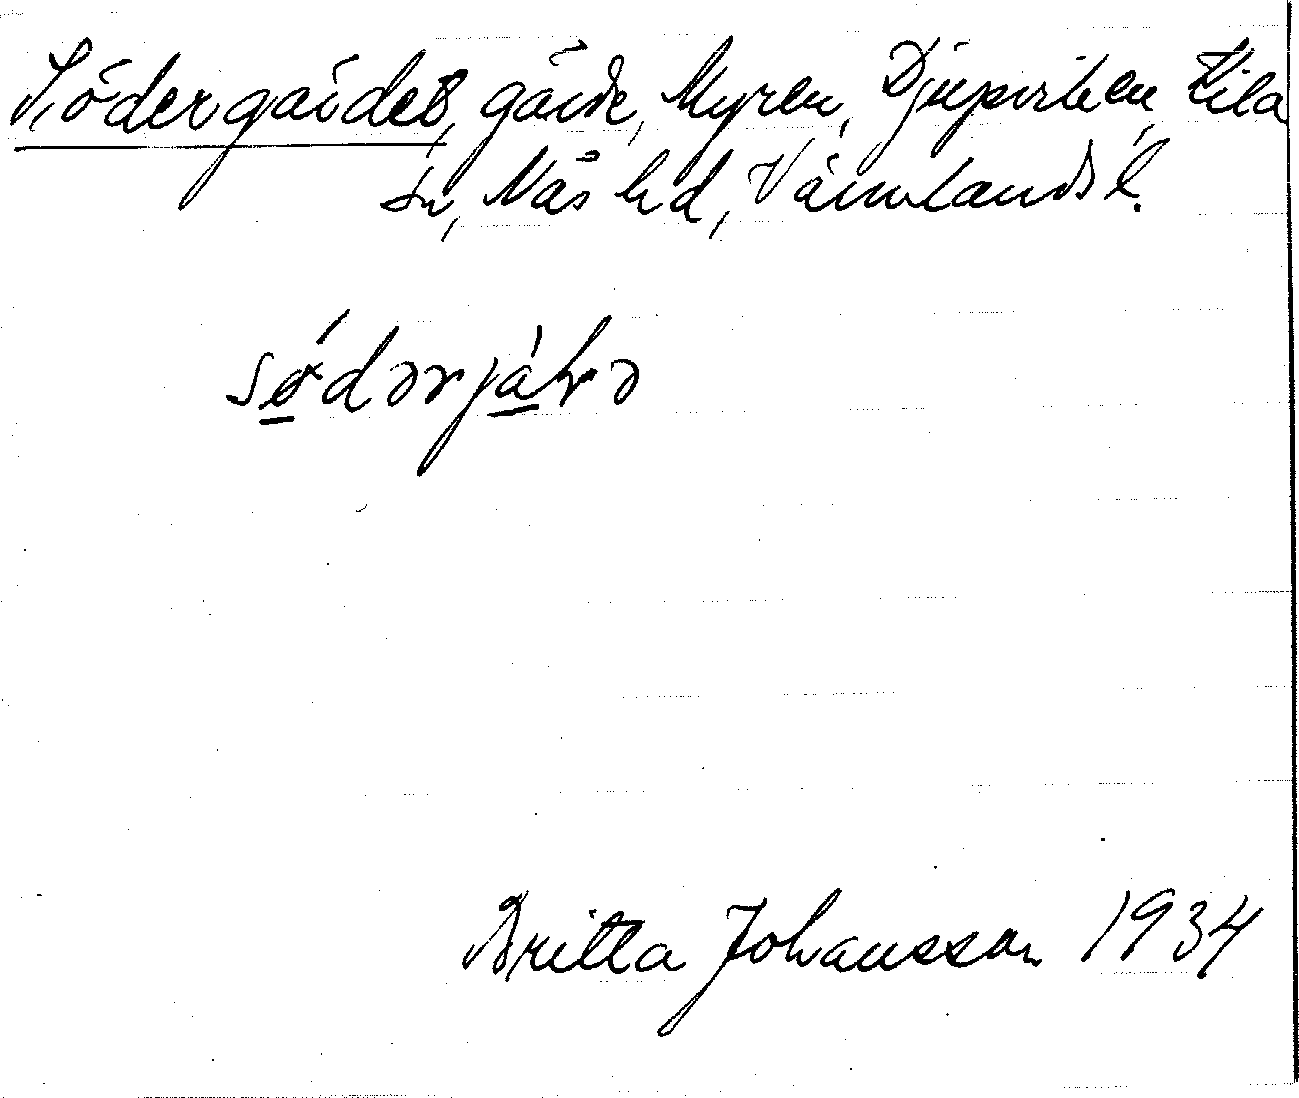 Södergärdet, gärde, Myren, Djupviken, Kila
sn, Näs hd, Värmlands l.
södərjäɫə
Britta Johansson 1934